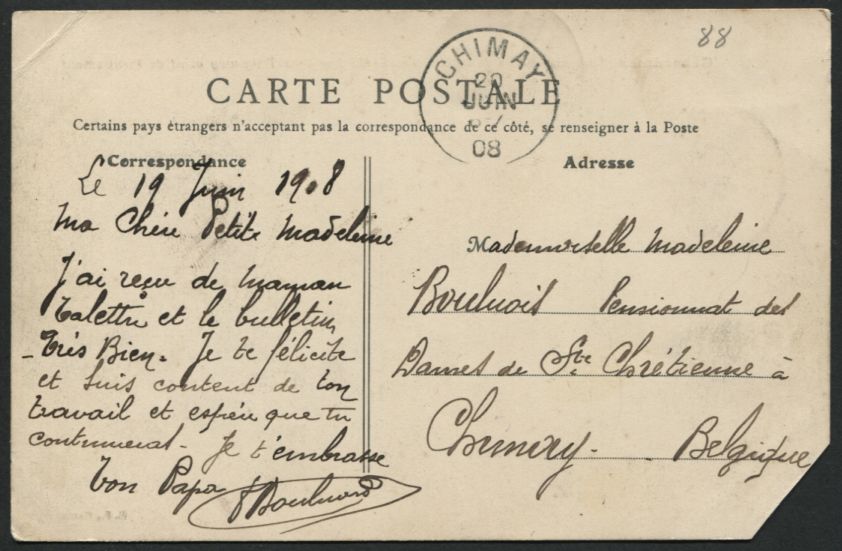 88
CHIMAY
20
JUIN
08
CARTE POSTALE
Certains pays étrangers n'acceptent pas la correspondance de ce côté, se renseigner à la Poste
Correspondance
Le 19 Juin 1908
Ma Chère Petite Madeleine
J'ai reçu de maman
ta lettre et le bulletin
- Très Bien. Je te félicite
et suis content de ton
travail et espère que tu
continueras. Je t'embrasse
Ton Papa
Adresse
Mademoiselle Madeleine
Boulnois Pensionnat des
Dames de Ste Chrétienne à
Chimay. Belgique